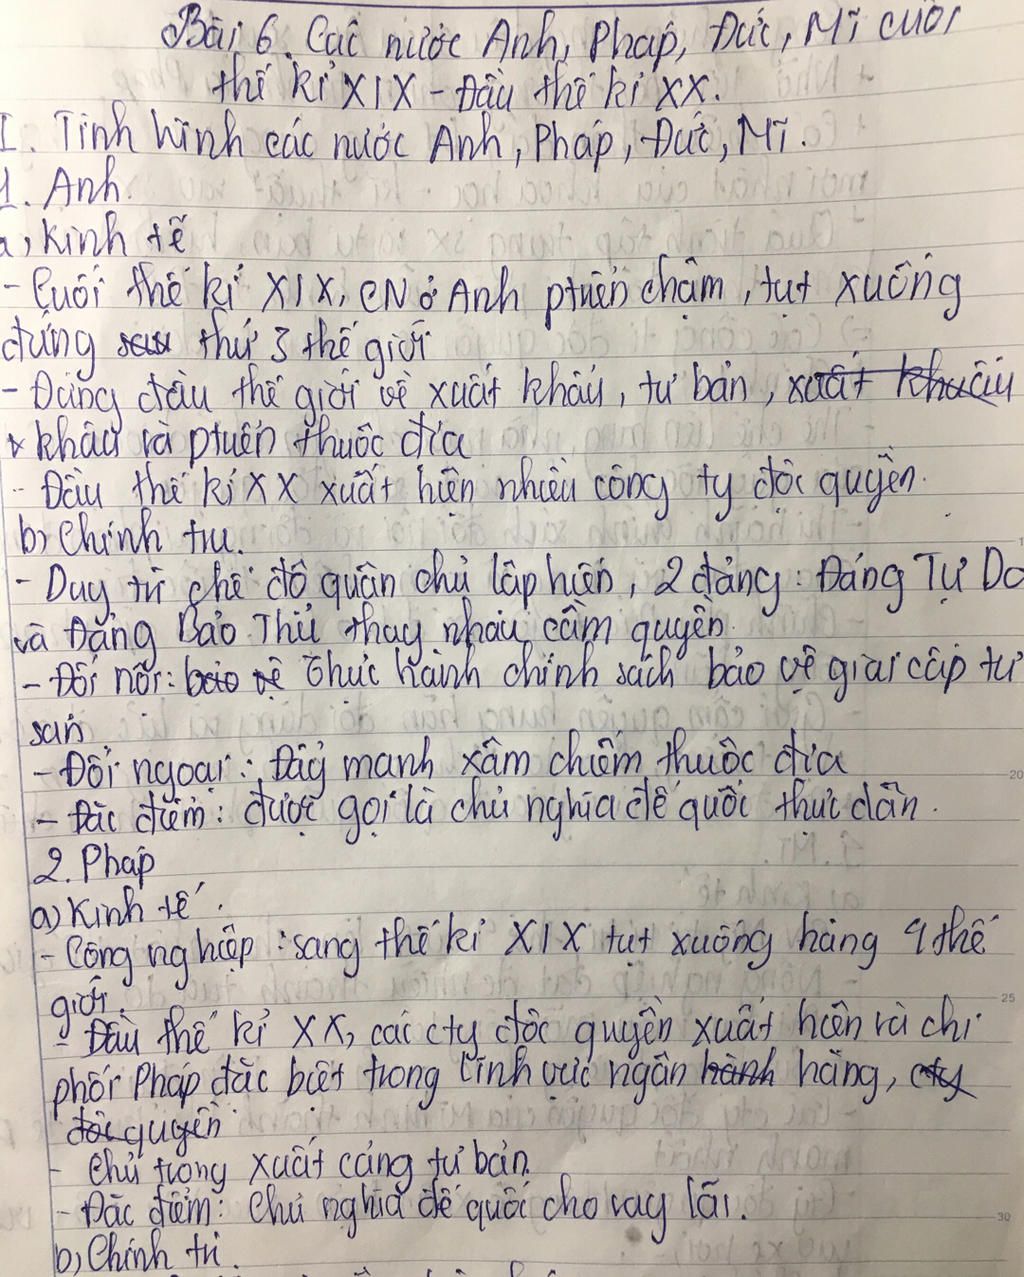 Bài 6. Các nước Anh, Pháp, Đức, Mĩ cuối
thế kỉ XIX - Đầu thế kỉ XX.
I. Tình hình các nước Anh, Pháp, Đức, Mĩ.
1. Anh.
a, Kinh tế
- Cuối thế kỉ XIX, CN ở Anh ptriển chậm, tụt xuống
đứng sau thứ 3 thế giới
- Đứng đầu thế giới về xuất khẩu, tư bản, xuất khẩu
khẩu và ptriển thuộc địa
- Đầu thế kỉ XX xuất hiện nhiều công ty độc quyền.
b, Chính trị.
- Duy trì chế độ quân chủ lập hiến, 2 đảng: Đảng Tự Do
và Đảng Bảo Thủ thay nhau cầm quyền.
- Đối nội: bảo vệ thực hành chính sách bảo vệ giai cấp tư
sản
- Đối ngoại: Đẩy mạnh xâm chiếm thuộc địa
- Đặc điểm: được gọi là chủ nghĩa đế quốc thực dân.
2. Pháp
a) Kinh tế.
- Công nghiệp: sang thế kỉ XIX tụt xuống hàng 4 thế
giới.
- Đầu thế kỉ XX, các cty độc quyền xuất hiện và chi
phối Pháp đặc biệt trong lĩnh vực ngân hành hàng, cty
độc quyền
- Chú trọng xuất cảng tư bản
- Đặc điểm: Chủ nghĩa đế quốc cho vay lãi.
b, Chính trị.